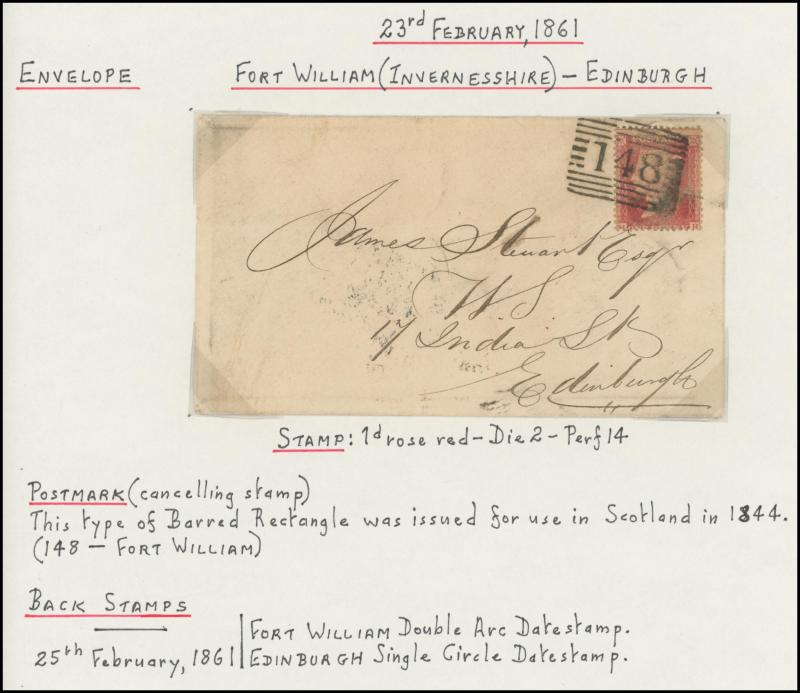 23rd FEBRUARY, 1861
ENVELOPE FORT WILLIAM (INVERNESSHIRE) – EDINBURGH
148
James Stewart Esqr
WS
17 India St
Edinburgh
STAMP: 1d rose red – Die 2 – Perf 14
POSTMARK (cancelling stamp)
This type of Barred Rectangle was issued for use in Scotland in 1844.
(148 – FORT WILLIAM)
BACK STAMPS
25th February, 1861
FORT WILLIAM Double Arc Datestamp.
EDINBURGH Single Circle Datestamp.